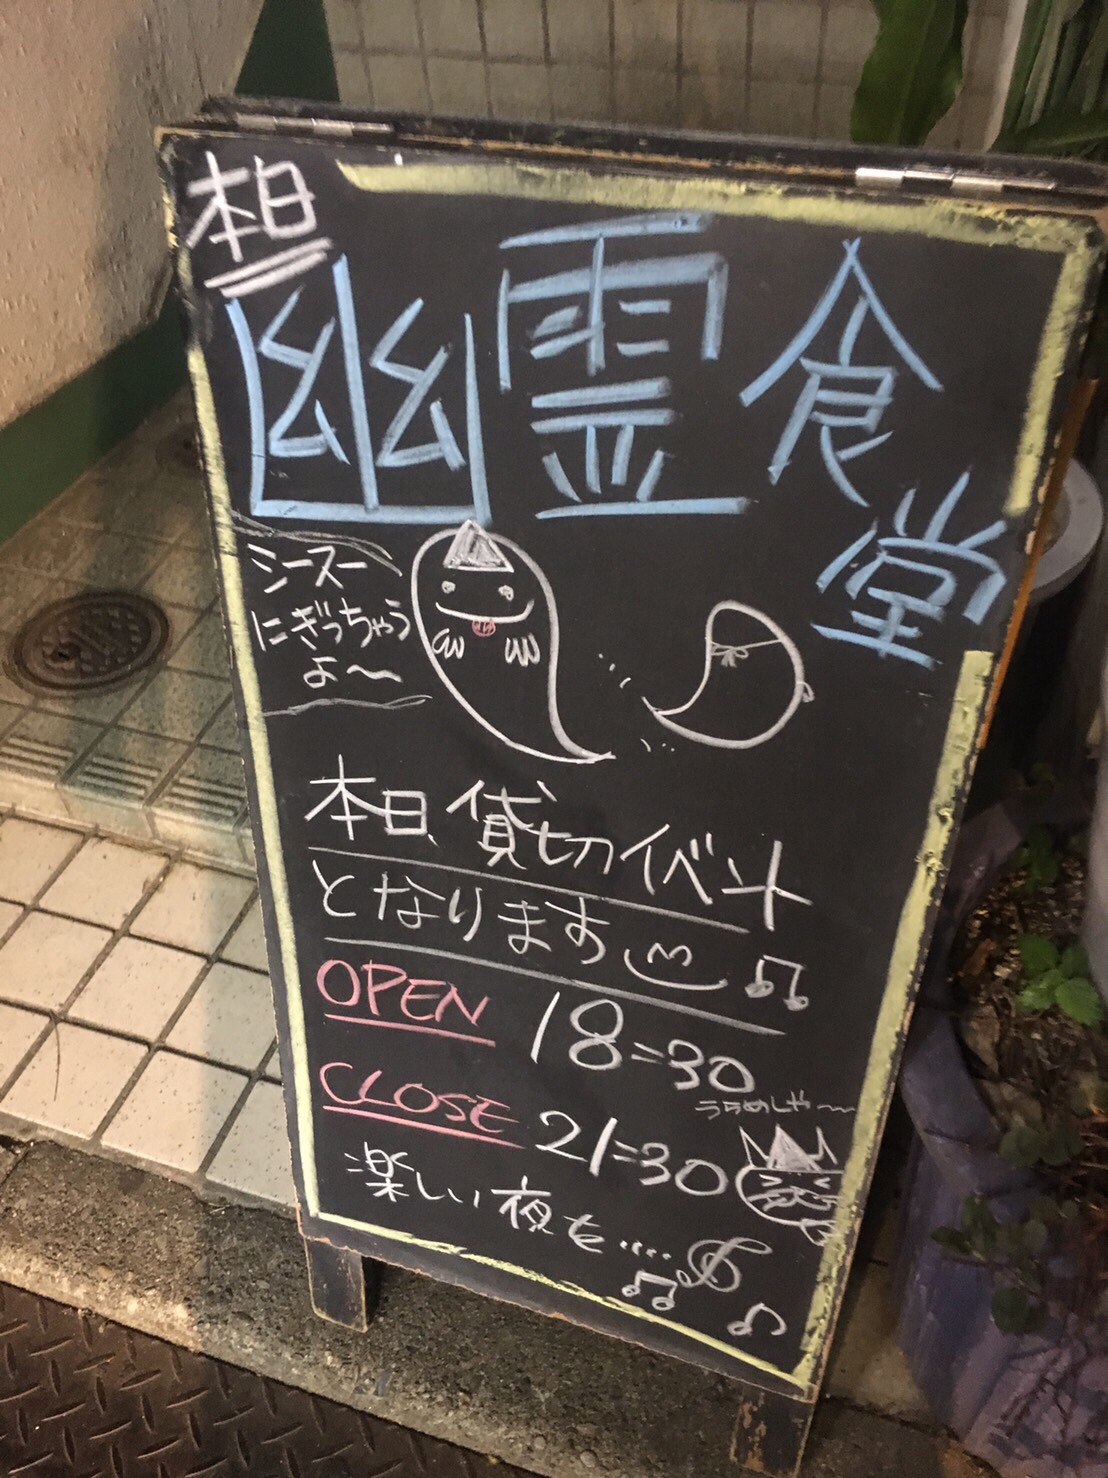 本日
幽霊食堂
シースー
にぎっちゃう
よ〜
本日、貸切イベント
となります♫
OPEN 18:30
CLOSE 21:30
うらめしや〜
楽しい夜を....